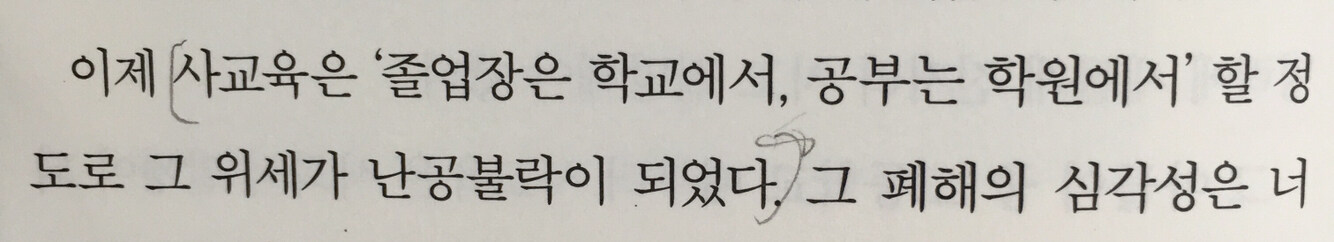 이제 사교육은 ‘졸업장은 학교에서, 공부는 학원에서’ 할 정
도로 그 위세가 난공불락이 되었다. 그 폐해의 심각성은 너